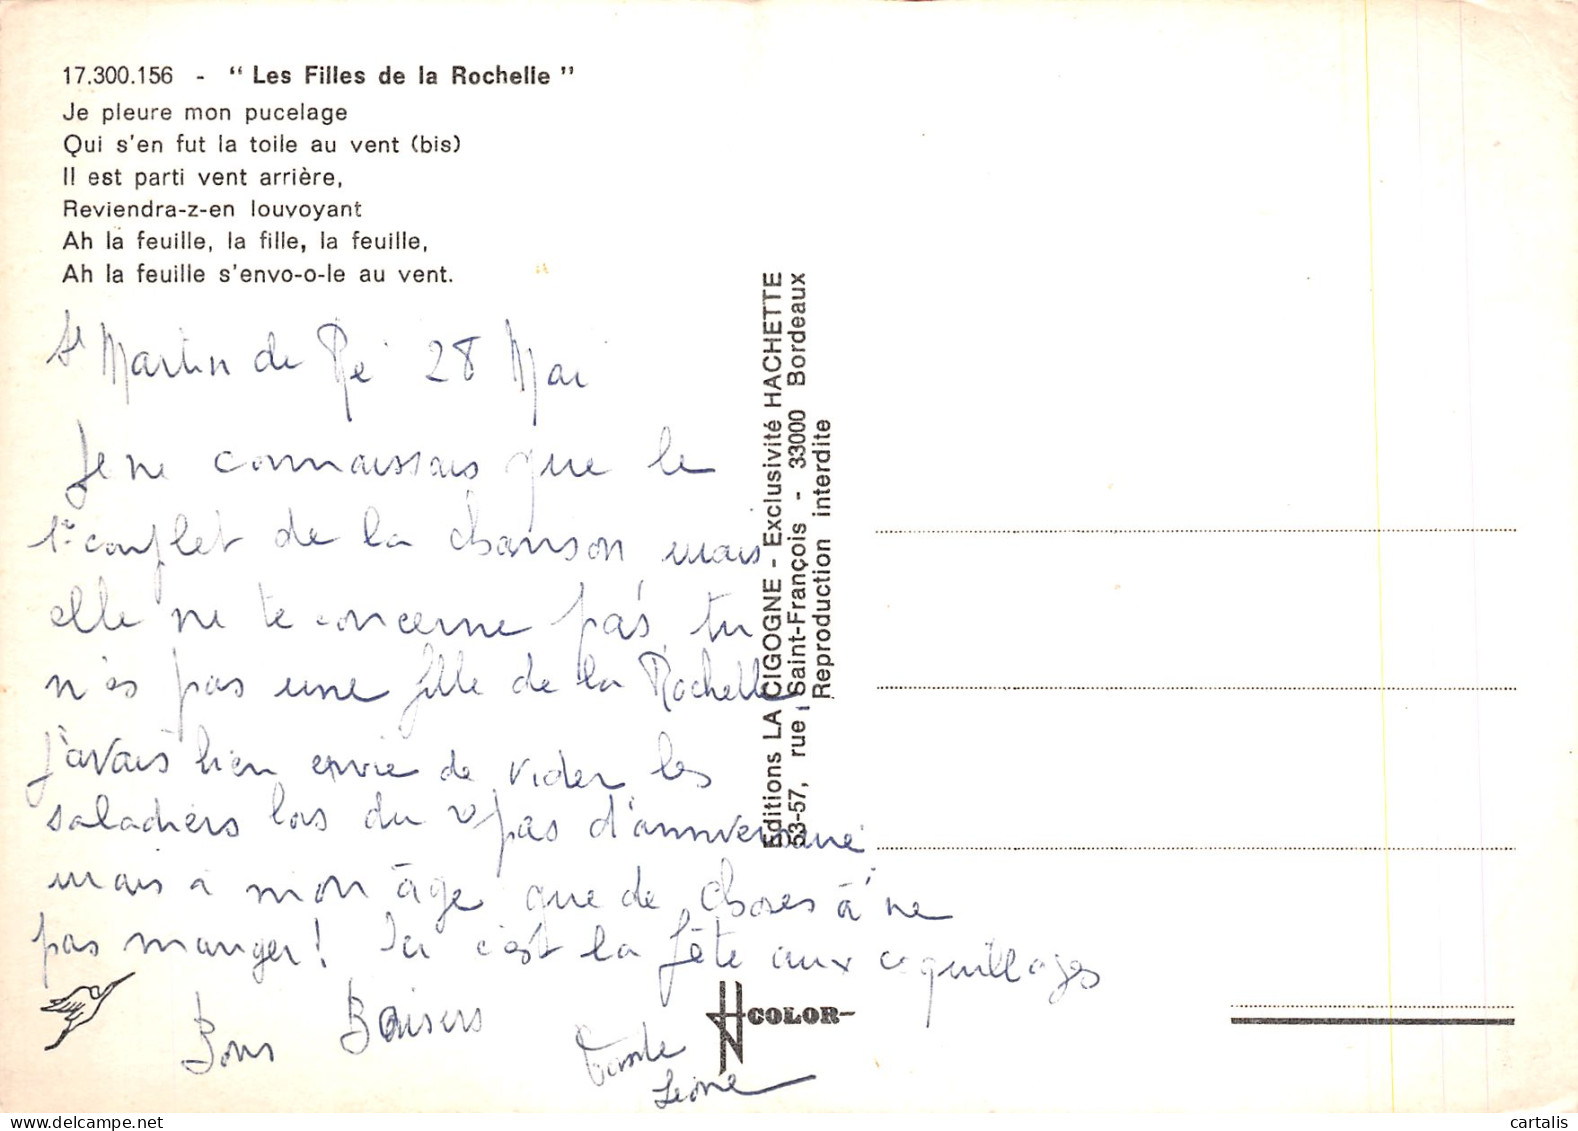 17.300.156 - " Les Filles de la Rochelle "
Je pleure mon pucelage
Qui s'en fut la toile au vent (bis)
Il est parti vent arrière,
Reviendra-z-en louvoyant
Ah la feuille, la fille, la feuille,
Ah la feuille s'envo-o-le au vent.
St Martin de Ré 28 Mai
Je ne connaissais que le
1er couplet de la chanson mais
elle ne te concerne pas, tu
n'es pas une fille de la Rochelle
J'avais bien envie de vider les
saladiers lors du repas d'anniversaire
mais à mon âge que de choses à ne
pas manger! Ici c'est la fête aux coquillages
Bons Baisers
Editions LA CIGOGNE - Exclusivité HACHETTE
53-57, rue Saint-François - 33000 Bordeaux
Reproduction interdite
COLOR
cartalis